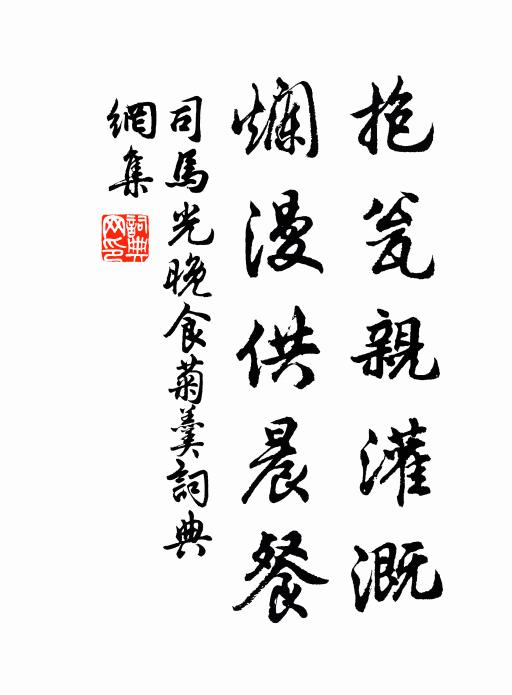 抱瓮親灌溉
爛漫供晨餐
司馬光晚食菊羹詞典
網集
詞典網印